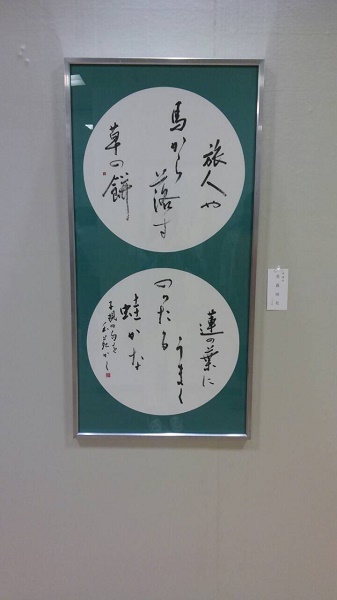 旅人や
馬から落す
草の餅
蓮の葉に
うまく
のったる
蛙かな
子規の句を